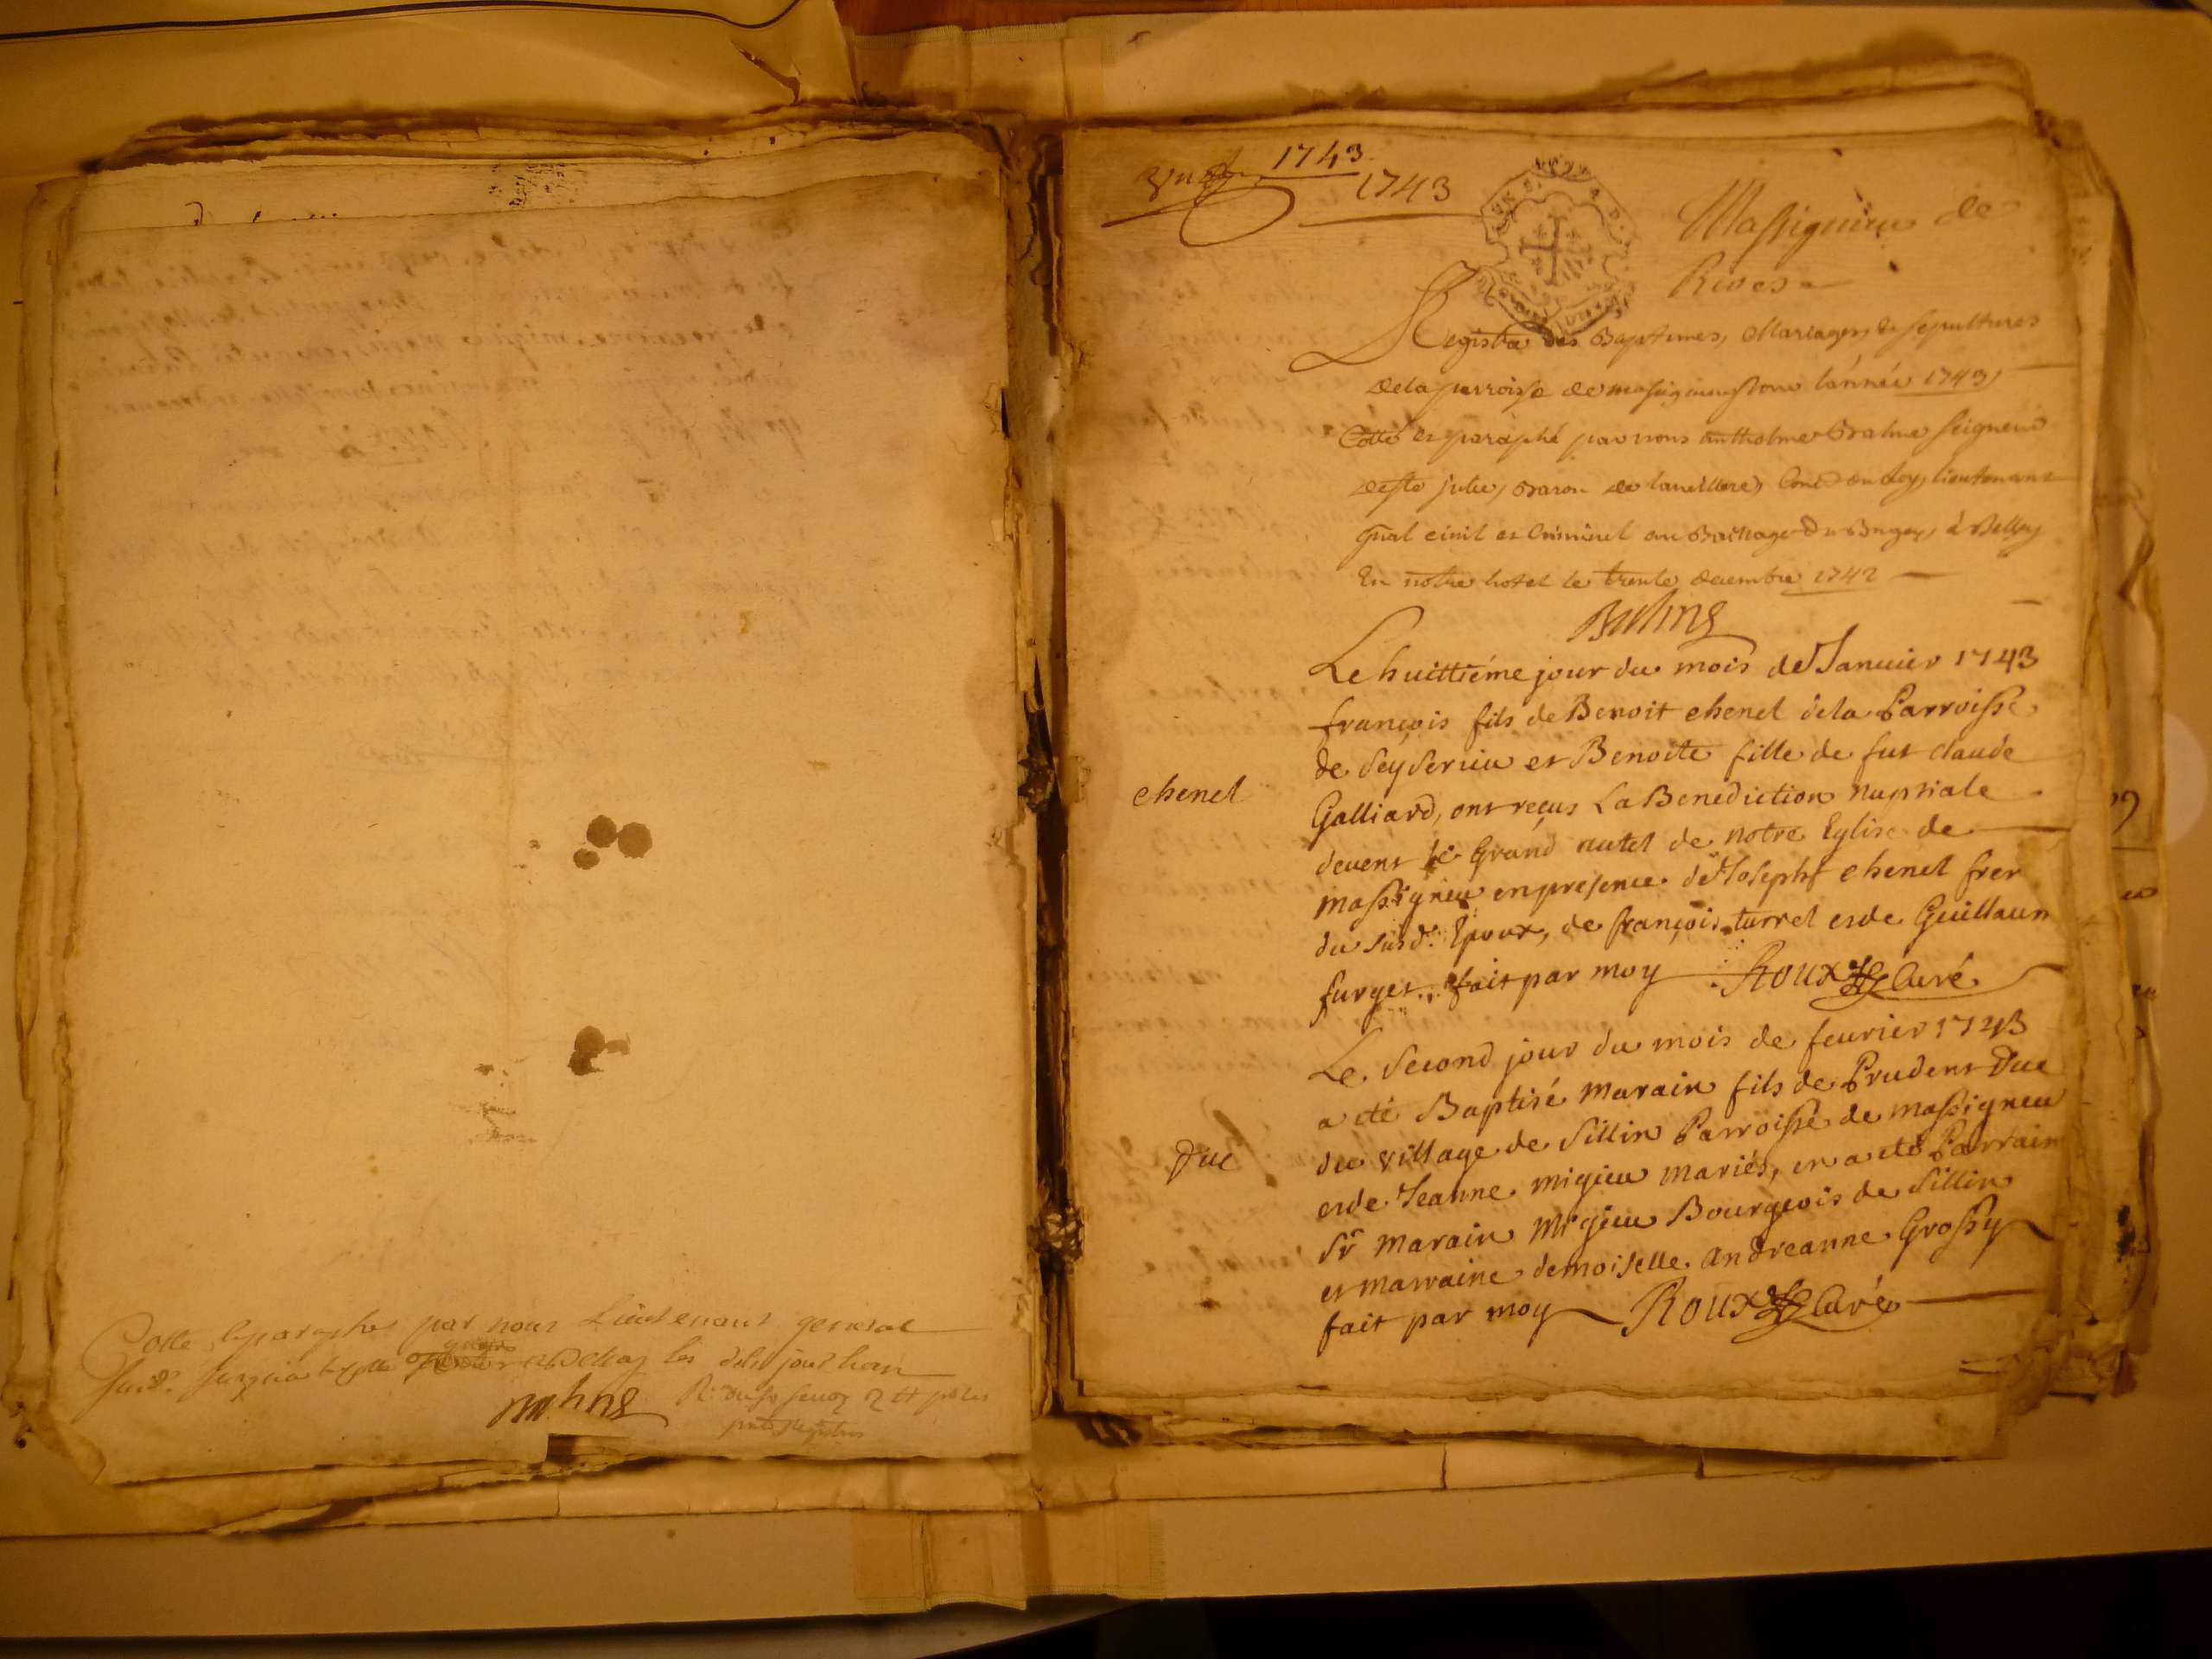 Colle paraphe par nous Lieutenant general
1743
1743
Massigneu de
Rives
Registre des Baptemes, Mariages, & sepultures
dela parroisse de massigneu pour lánnée 1743,
Cotté et paraphé par nous antholme Balme seigneur
deste julie, Baron de Consr du Roy, lieutenant
gñal civil et Criminel au Bailliage du Bugey, à Belley
En notre hotel le trente decembre 1742
Balme
Le huittiéme jour du mois de Januier 1743
françois fils de Benoit chenel dela Parroisse
de Seyserieu et Benoite fille de fut claude
chenel
Galliard, ont reçus La Benediction nuptiale
devent le Grand autel de notre Eglise de
massigneu en presence de Joseph chenel frer
du susd. Epoux, de françois turrel et de Guillaum
furget fait par moy Roux Curé
Le Second jour du mois de feurier 1743
a eté Baptisé marain fils de Prudent Duc
Duc
du village de Sillin Parroisse de massigneu
et de Jeanne migieu mariés, en a eté Parrain
Sr marain Migieu Bourgeois de Sillin
et marraine demoiselle andreanne Grossy
fait par moy Roux Curé